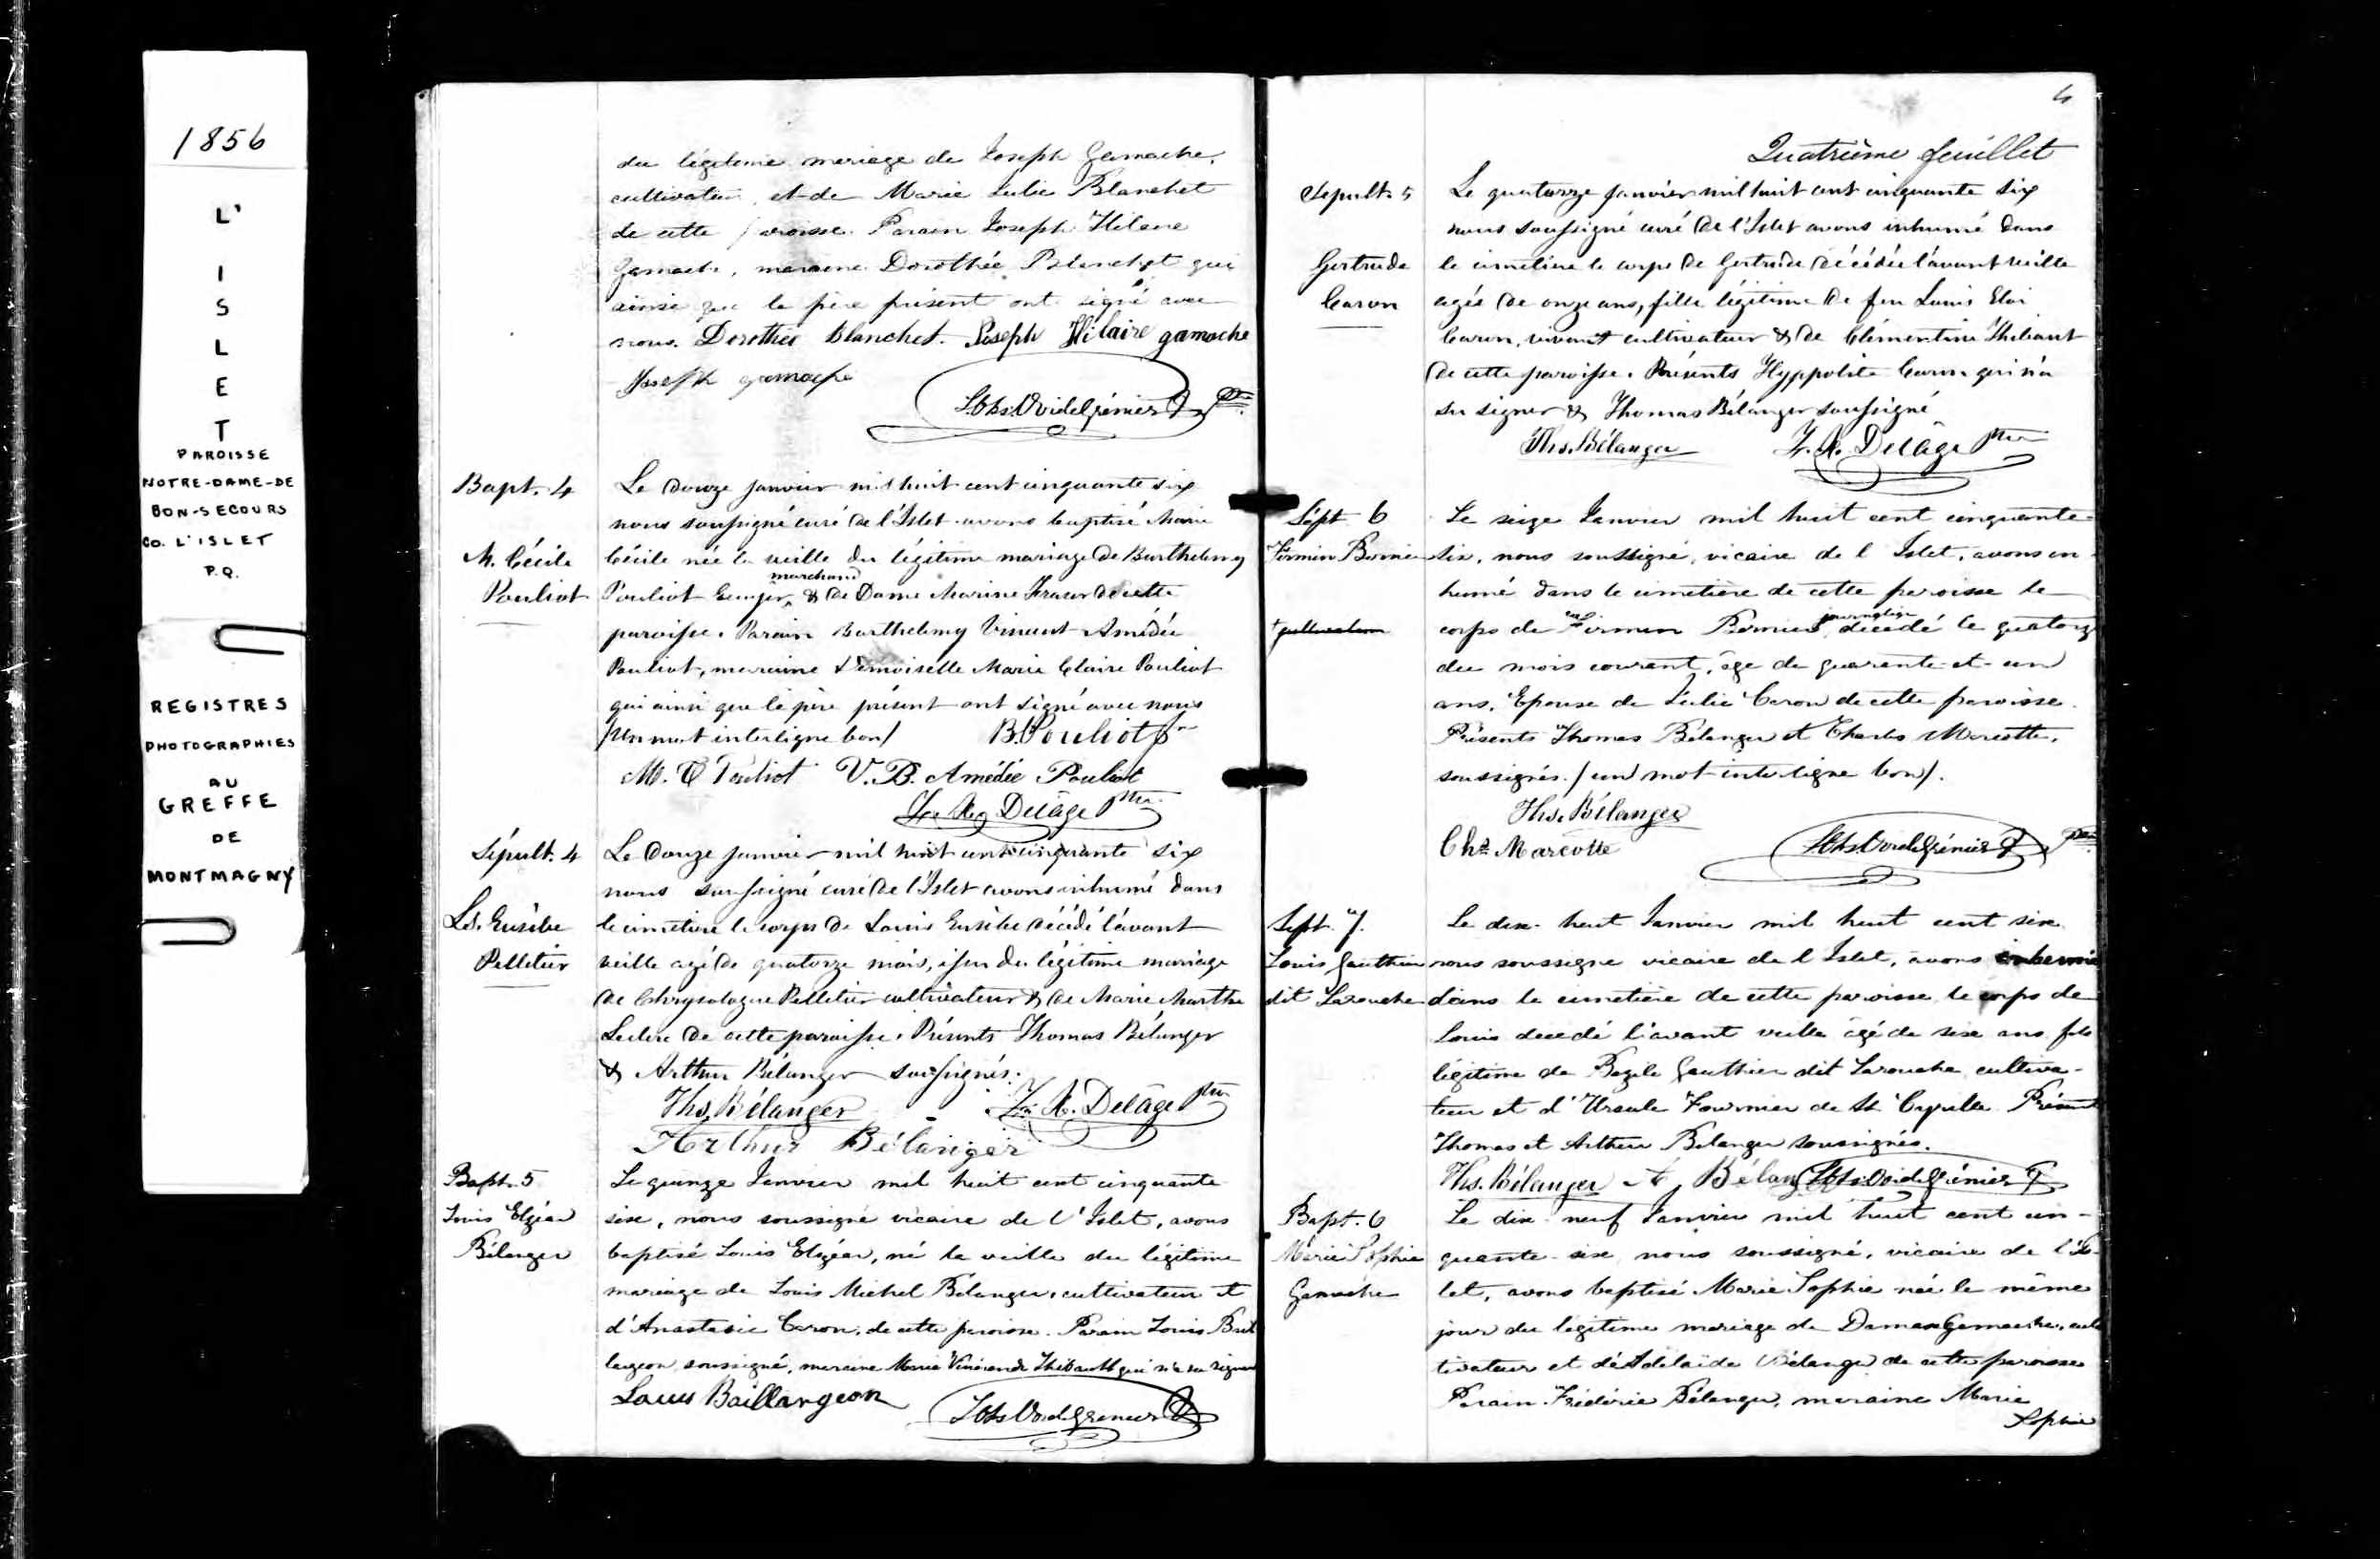 1856
L'
I
S
L
E
T
PAROISSE
NOTRE-DAME-DE
BON-SECOURS
CO. L'ISLET
P.Q.
REGISTRES
PHOTOGRAPHIES
AU
GREFFE
DE
MONTMAGNY
du légitime mariage de Joseph Gamache,
cultivateur, et de Marie Julie Blanchet
de cette paroisse. Parain Joseph Hilaire
Gamache, maraine Dorothée Blanchet qui
ainsi que le père présent ont signé avec
nous. Dorothée Blanchet. Joseph Hilaire gamache
Joseph gamache
Bapt. 4
M. Cécile
Pouliot
Le douze janvier mil huit cent cinquante six
nous soussigné curé de l'Islet avons baptisé Marie
Cécile née la veille du légitime mariage de Barthelemy
marchand
Pouliot Ecuyer, & de Dame Marine Fraser de cette
paroisse. Parain Barthelemy Vincent Amédée
Pouliot, maraine Demoiselle Marie Claire Pouliot
qui ainsi que le père présent ont signé avec nous
/un mot interligne bon/ B. Pouliot
M. C Pouliot V. B. Amédée Pouliot
F. X. Delâge Ptre
Sépult. 4
Ls. Eusèbe
Pelletier
Le douze janvier mil huit cent cinquante six
nous soussigné curé de l'Islet avons inhumé dans
le cimetière le corps de Louis Eusèbe décédé l'avant
veille agé de quatorze mois, issu du légitime mariage
de Chrysologue Pelletier cultivateur & de Marie Marthe
Leclerc de cette paroisse. Présents Thomas Bélanger
& Arthur Bélanger soussignés.
Ths. Bélanger F. X. Delâge Ptre
Arthur Bélanger
Bapt. 5
Louis Elzéar
Bélanger
Le quinze Janvier mil huit cent cinquante
six, nous soussigné vicaire de l'Islet, avons
baptisé Louis Elzéar, né la veille du légitime
mariage de Louis Michel Bélanger, cultivateur et
d'Anastasie Caron, de cette paroisse. Parain Louis Bail
largeon soussigné, maraine Marie Vénérende Thibault qui n'a su signer
Louis Baillargeon
4
Quatrième feuillet
Sépult. 5
Gertrude
Caron
Le quatorze janvier mil huit cent cinquante six
nous soussigné curé de l'Islet avons inhumé dans
le cimetière le corps de Gertrude décédée l'avant veille
agée de onze ans, fille légitime de feu Louis Eloi
Caron, vivant cultivateur & de Clémentine Thibault
de cette paroisse. Présents Hyppolite Caron qui n'a
su signer & Thomas Bélanger soussigné
Ths. Bélanger F. X. Delâge Ptre
Sépt 6
Firmin Bernier
Le seize Janvier mil huit cent cinquante
six, nous soussigné, vicaire de l'Islet, avons in
humé dans le cimetière de cette paroisse le
journalier
corps de Firmin Bernier décédé le quatorze
du mois courant, âgé de quarante-et-un
ans, Epouse de Julie Caron de cette paroisse.
Présents Thomas Bélanger et Charles Marcotte,
soussignés. /un mot interligne bon/.
Ths. Bélanger
Chs Marcotte
Sept. 7.
Louis Gauthier
dit Larouche
Le dix-huit Janvier mil huit cent six
nous soussigné vicaire de l'Islet, avons inhumé
dans le cimetière de cette paroisse le corps de
Louis decedé l'avant veille âgé de six ans fils
légitime de Bazile Gauthier dit Larouche cultiva-
teur et d'Ursule Fournier de St Cyrille. Présents
Thomas et Arthur Bélanger soussignés.
Ths. Bélanger A
Bapt. 6
Marie Sophie
Gamache
Le dix-neuf Janvier mil huit cent cin-
quante-six nous soussigné, vicaire de l'Is-
let, avons baptisé Marie Sophie née le même
jour du légitime mariage de Damase Gamache, cul
tivateur et de Adelaïde Bélanger de cette paroisse
Parain Frédéric Bélanger, maraine Marie
Sophie